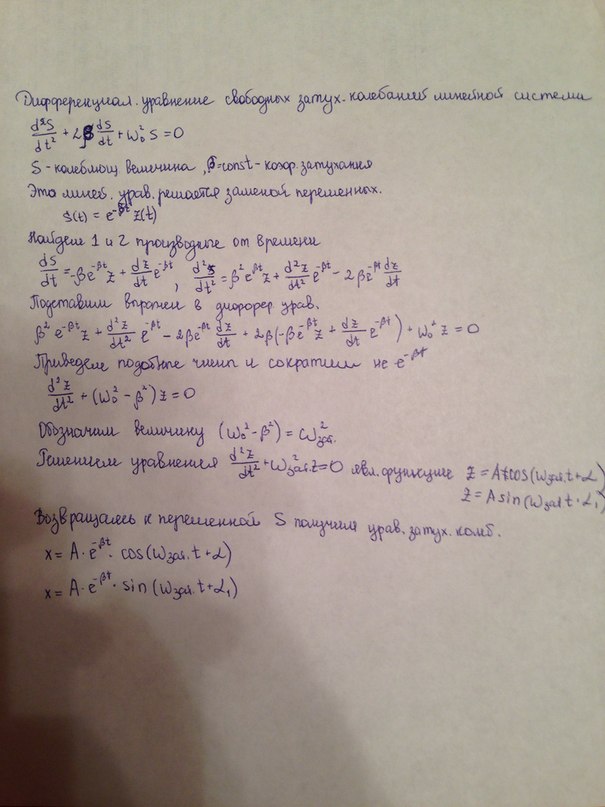 Дифференциал. уравнение свободных затух. колебаний линейной системы
d²S/dt² + 2β dS/dt + ω₀² S = 0
S - колеблющ. величина, β = const - коэф. затухания
Это линей. урав. решается заменой переменных.
S(t) = e^(-βt) z(t)
Найдем 1 и 2 производные от времени
dS/dt = -βe^(-βt) z + dz/dt e^(-βt), d²S/dt² = β² e^(-βt) z + d²z/dt² e^(-βt) - 2βe^(-βt) dz/dt
Подставим в диффер. урав.
β² e^(-βt) z + d²z/dt² e^(-βt) - 2βe^(-βt) dz/dt + 2β(-βe^(-βt) z + dz/dt e^(-βt)) + ω₀² z = 0
Приведем подобные члены и сократим не e^(-βt)
d²z/dt² + (ω₀² - β²) z = 0
Обозначим величину (ω₀² - β²) = ω²зат.
Решением уравнения d²z/dt² + ω²зат. z = 0 явл. функции z = A cos(ωзат. t + α)
z = A sin(ωзат. t + α₁)
Возвращаясь к переменной S получим урав. затух. колеб.
x = A · e^(-βt) · cos(ωзат. t + α)
x = A · e^(-βt) · sin(ωзат. t + α₁)